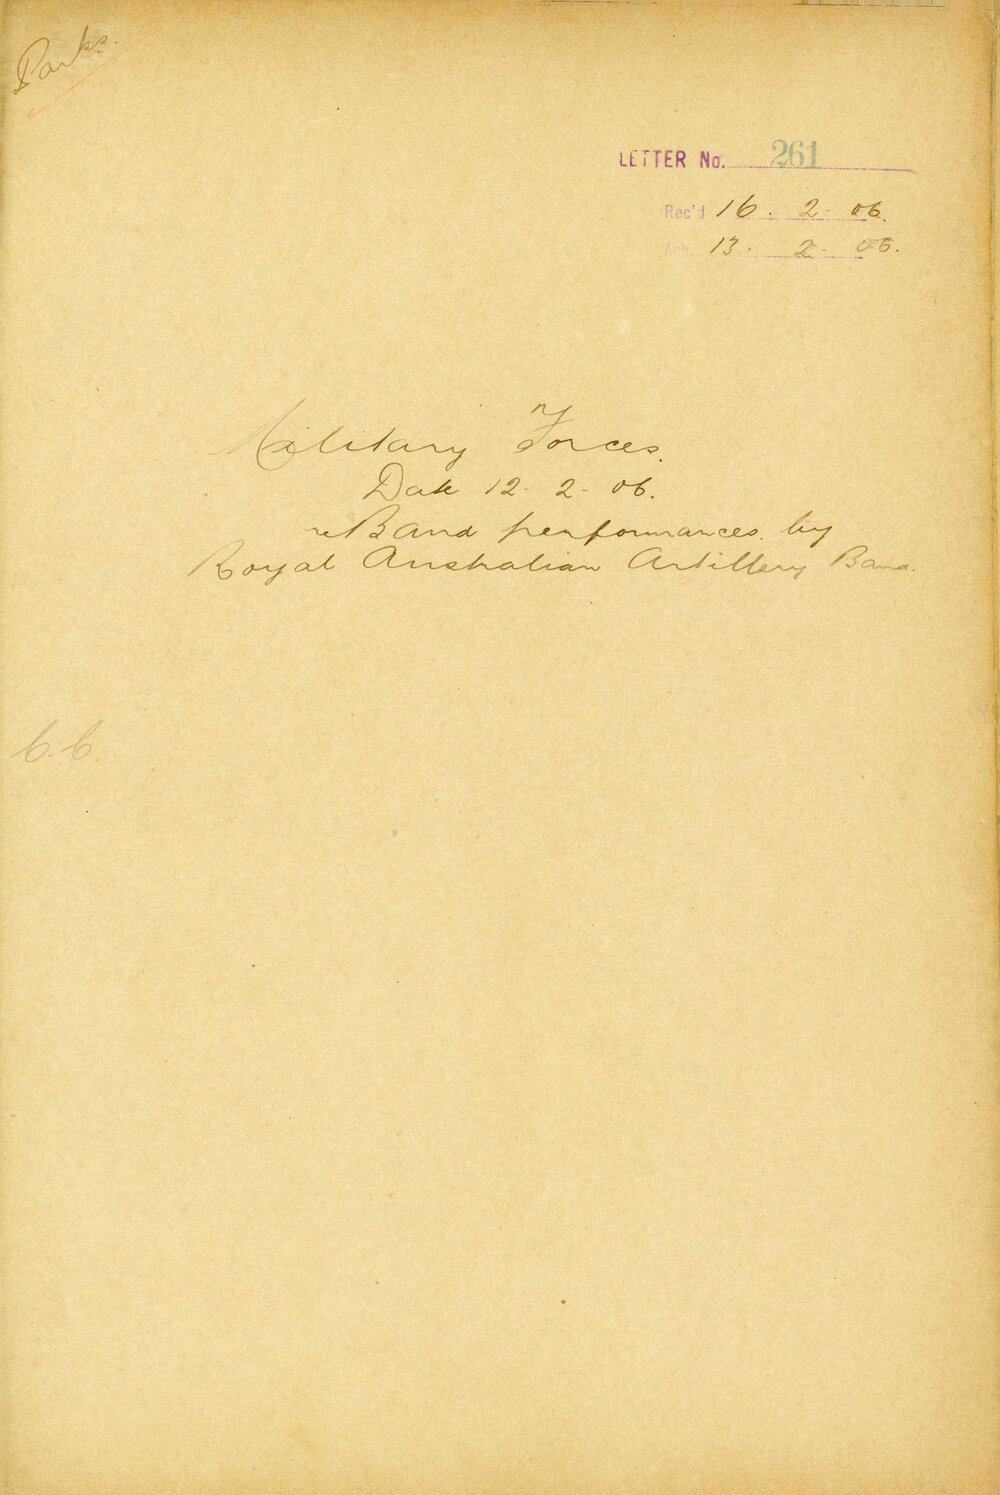 Parks.
LETTER No. 261
Rec'd 16. 2-06.
Ack. 13. 2-06.
Military Forces.
Date 12-2-06.
re Band performances. by
Royal Australian Artillery Band.
C.C.